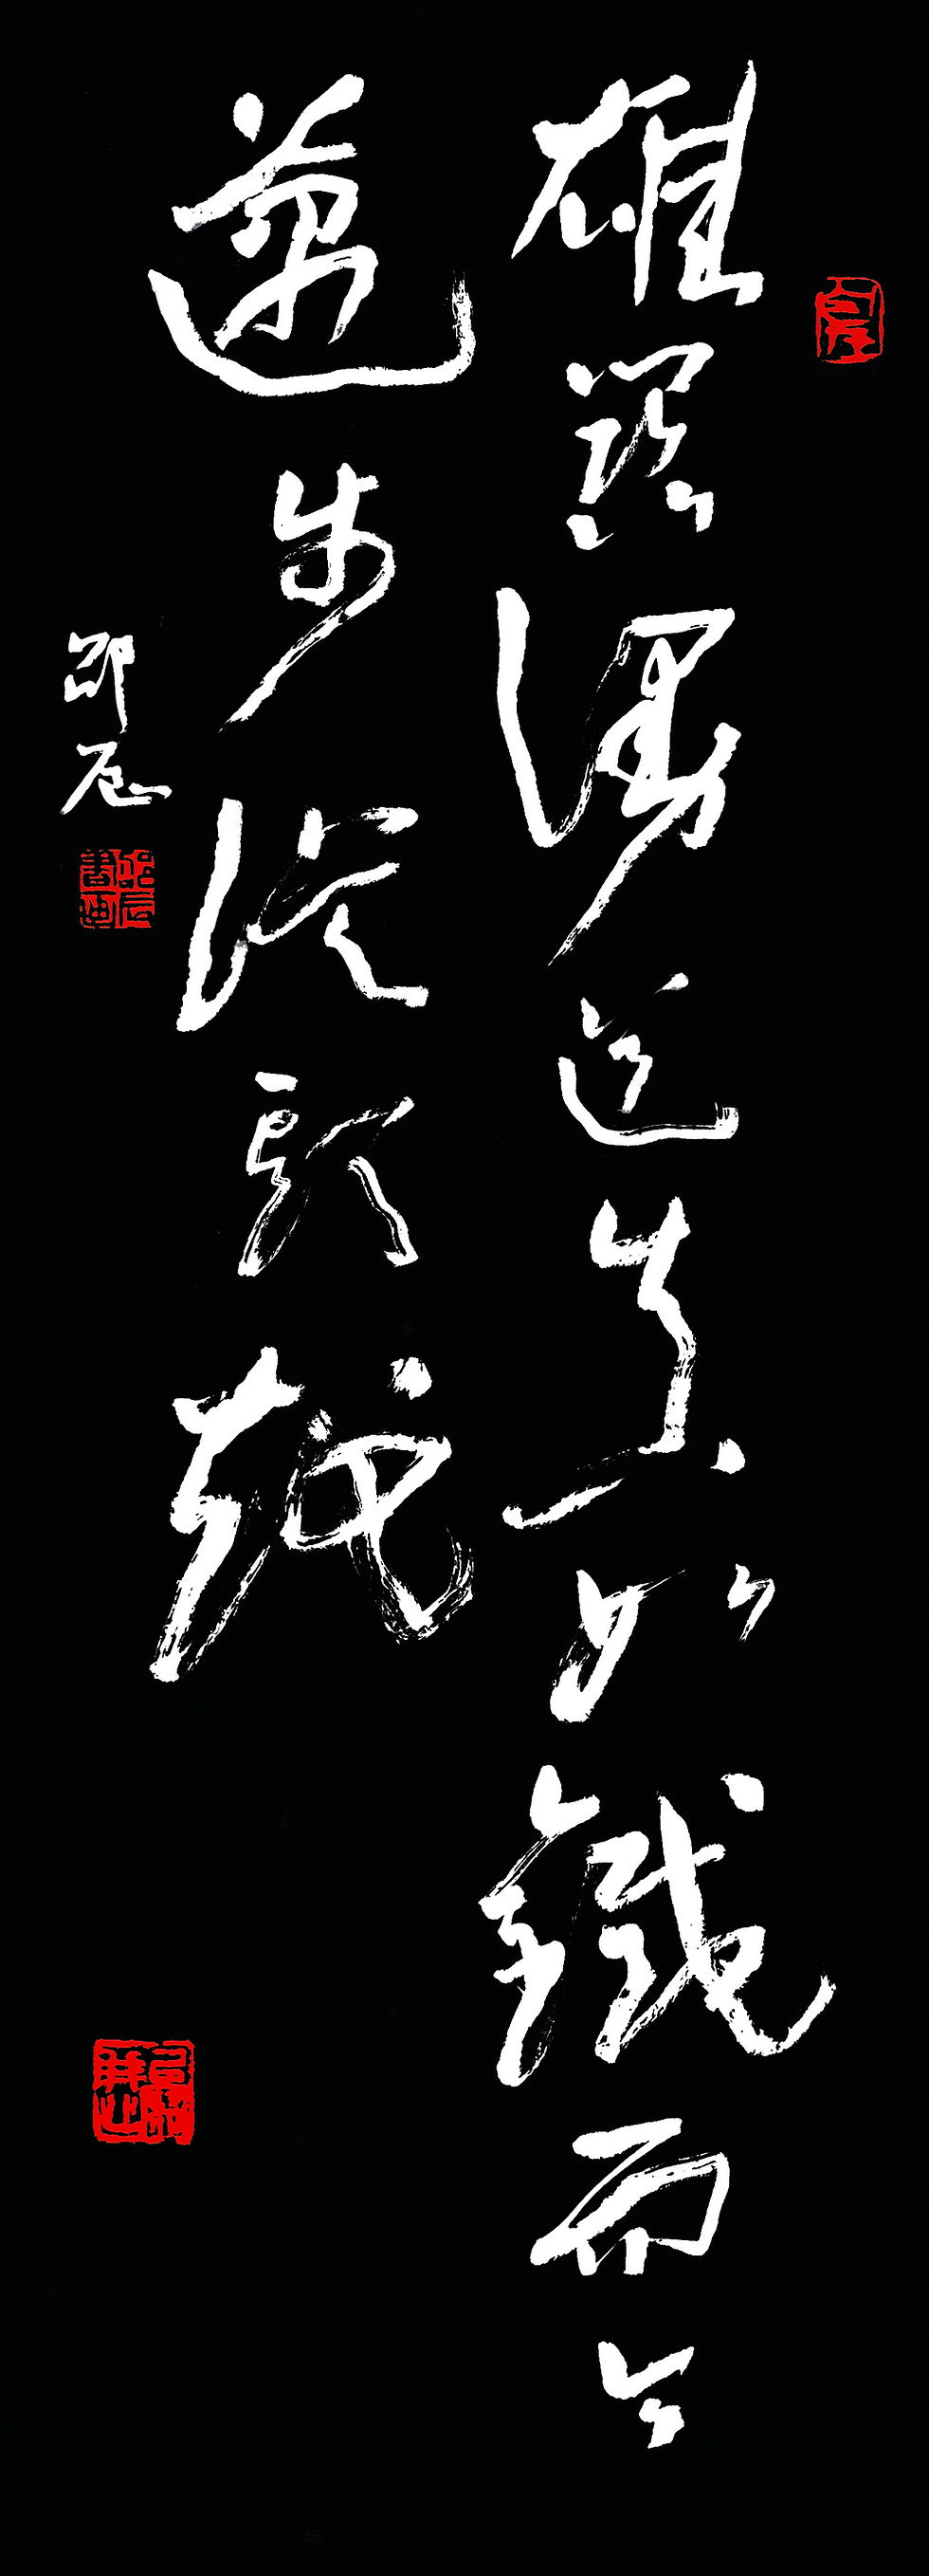 雄關漫道真如鐵而今
邁步從頭越
邵辰